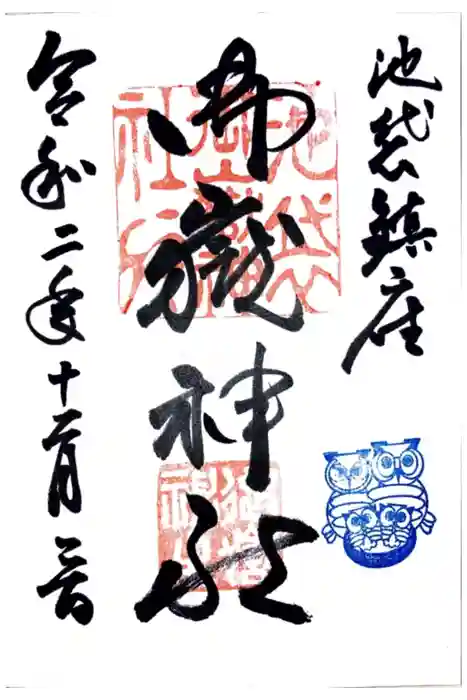 池袋鎮座
御嶽神社
令和二年十月日